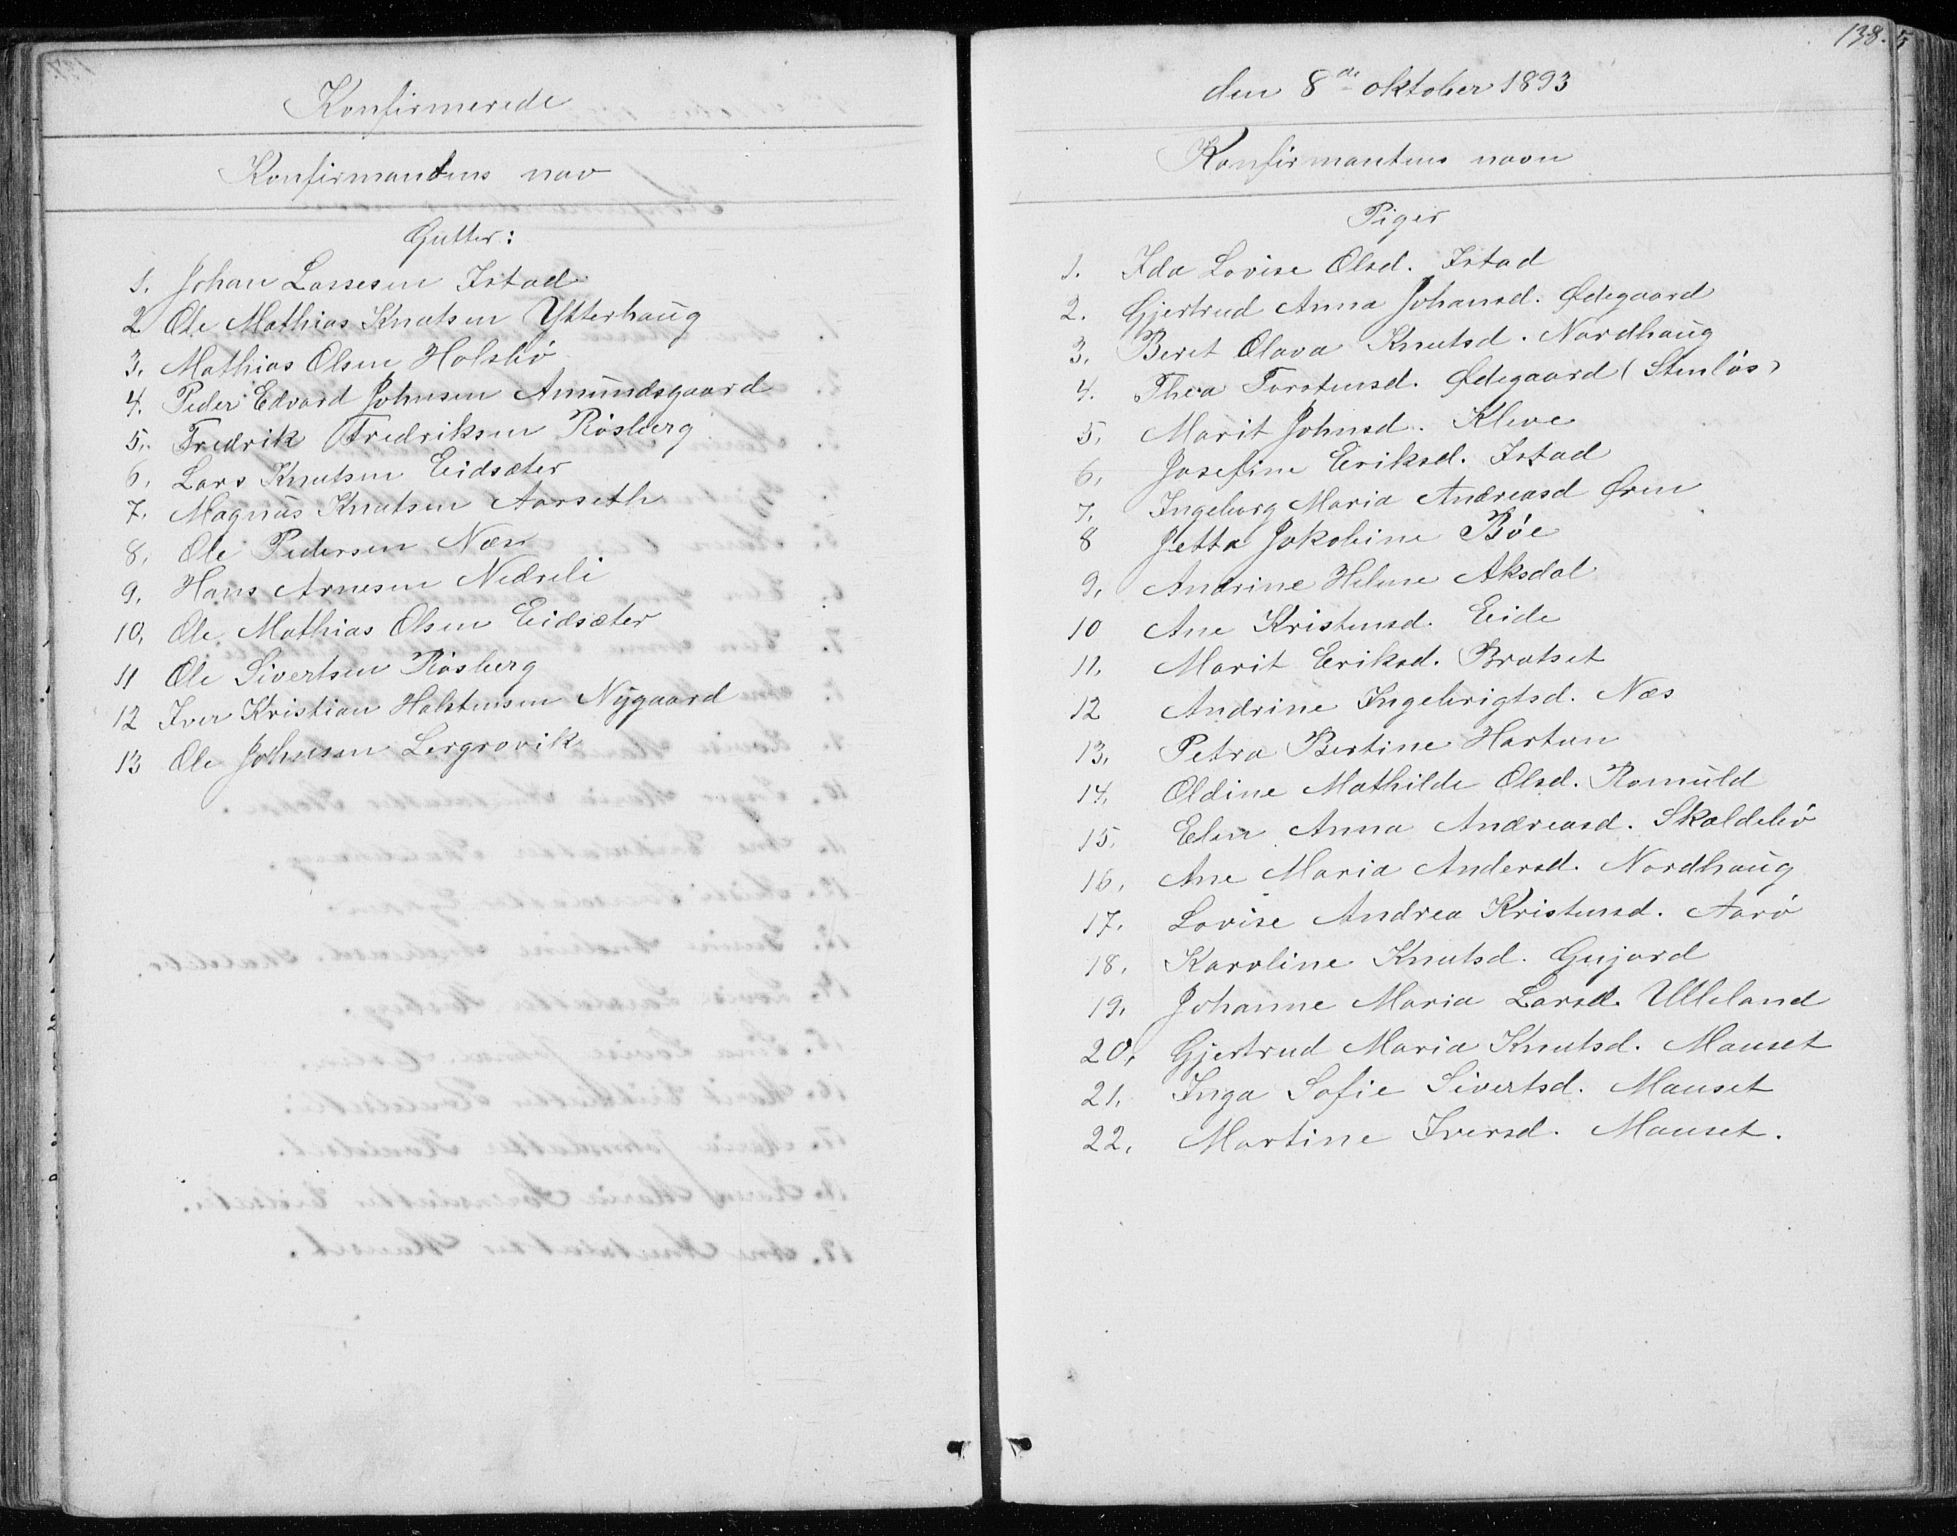 Konfirmerede
Konfirmantens nav
Gutter:
1. Johan Lassesen Istad
2 Ole Mathias Knutsen Ytterhaug
3. Mathias Olsen Holsbø
4. Peder Edvard Johnsen Amundsgaard
5. Fredrik Fredriksen Røsberg
6. Lars Knutsen Eidsæter
7. Magnus Knutsen Aarseth
8. Ole Pedersen Næss
9. Hans Arnesen Nedreli
10. Ole Mathias Olsen Eidsæter
11 Ole Sivertsen Røsberg
12 Iver Kristian Halstensen Nygaard
13 Ole Johnsen Lergrovik
138.
den 8de oktober 1893
Konfirmantens navn
Piger
1. Ida Lovise Olsd. Istad
2. Gjertrud Anna Johansd. Ødegaard
3. Beret Olava Knutsd. Nordhaug
4. Thea Torstensd. Ødegaard (Stenløs)
5. Marit Johnsd. Kleve
6. Josefine Eriksd. Istad
7. Ingeborg Maria Andreasd Øren
8 Jetta Jakobine Bøe
9. Andrine Helene Aksdal
10 Ane Kristensd. Eide
11. Marit Eriksd. Bratset
12 Andrine Ingebrigtsd. Næs
13. Petra Bertine Hartun
14. Oldine Mathilde Olsd. Romuld
15. Elen Anna Andreasd. Skaldebø
16. Ane Maria Andersd. Nordhaug
17. Lovise Andrea Kristensd. Aarø
18. Karoline Knutsd. Gujord
19. Johanne Maria Larsd. Ulleland
20. Gjertrud Maria Knutsd. Mauset
21. Inga Sofie Sivertsd. Mauset
22. Martine Iversd. Mauset.